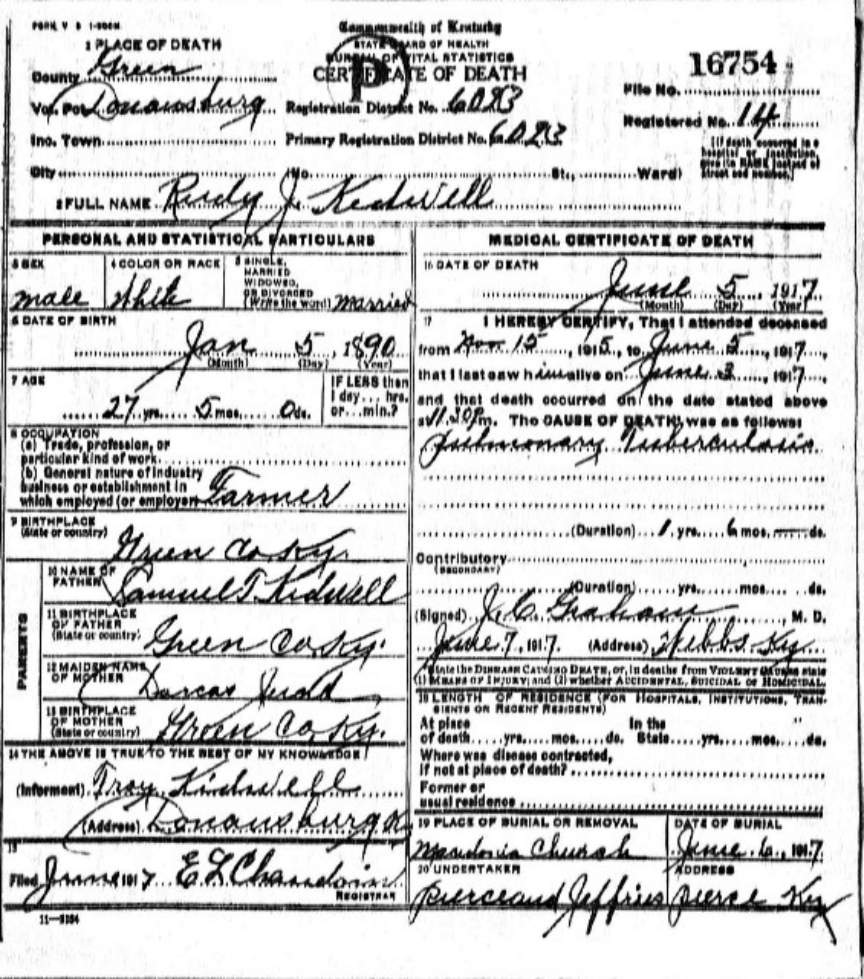 FORM V S 1-500M
Commonwealth of Kentucky
STATE BOARD OF HEALTH
BUREAU OF VITAL STATISTICS
CERTIFICATE OF DEATH
1 PLACE OF DEATH
County Green
Vot. Pct. Donansburg
Inc. Town
City
Registration District No. 6023
Primary Registration District No. 6023
(No. St., Ward)
16754
File No.
Registered No. 14
(If death occurred in a
hospital or institution,
give its NAME instead of
street and number.)
2 FULL NAME Rudy J. Kidwell
PERSONAL AND STATISTICAL PARTICULARS
3 SEX
male
4 COLOR OR RACE
White
5 SINGLE,
MARRIED
WIDOWED,
OR DIVORCED
(Write the word) married
6 DATE OF BIRTH
Jan 5, 1890
(Month) (Day) (Year)
7 AGE
27 yrs. 5 mos. 0 ds.
IF LESS than
1 day... hrs.
or... min.?
8 OCCUPATION
(a) Trade, profession, or
particular kind of work
(b) General nature of industry
business or establishment in
which employed (or employer) Farmer
9 BIRTHPLACE
(State or country)
Green Co. Ky.
PARENTS
10 NAME OF
FATHER Samuel T Kidwell
11 BIRTHPLACE
OF FATHER
(State or country) Green Co. Ky.
12 MAIDEN NAME
OF MOTHER Dorcas
13 BIRTHPLACE
OF MOTHER
(State or country) Green Co. Ky.
14 THE ABOVE IS TRUE TO THE BEST OF MY KNOWLEDGE
(Informant) Troy Kidwell
(Address) Donansburg Ky
15
Filed June 1917 E L Chaudoin
REGISTRAR
11-3184
MEDICAL CERTIFICATE OF DEATH
16 DATE OF DEATH
June 5, 1917
(Month) (Day) (Year)
17 I HEREBY CERTIFY, That I attended deceased
from Nov 15, 1915, to June 5, 1917,
that I last saw him alive on June 3, 1917,
and that death occurred on the date stated above
at 11.30 Pm. The CAUSE OF DEATH was as follows:
Pulmonary Tuberculosis
(Duration) 1 yrs. 6 mos. — ds.
Contributory
(SECONDARY)
(Duration) yrs. mos. ds.
(Signed) J. C. Graham, M. D.
June 7, 1917. (Address) Webbs Ky
State the DISEASE CAUSING DEATH, or, in deaths from VIOLENT CAUSES state
(1) MEANS OF INJURY; and (2) whether ACCIDENTAL, SUICIDAL or HOMICIDAL.
18 LENGTH OF RESIDENCE (FOR HOSPITALS, INSTITUTIONS, TRANSIENTS OR RECENT RESIDENTS)
At place In the
of death yrs. mos. ds. State yrs. mos. ds.
Where was disease contracted,
if not at place of death?
Former or
usual residence
19 PLACE OF BURIAL OR REMOVAL
Church
DATE OF BURIAL
June 6, 1917
20 UNDERTAKER
Pierce and Jeffries
ADDRESS
Pierce Ky